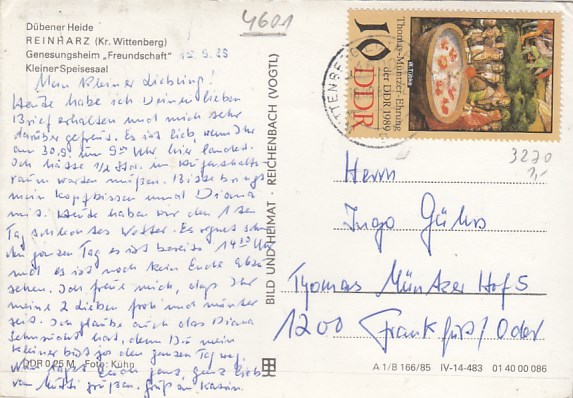 Dübener Heide
REINHARZ (Kr. Wittenberg)
Genesungsheim „Freundschaft"
Kleiner Speisesaal
4601
Mein kleiner Liebling!
Heute habe ich Deinen lieben
Brief erhalten und mich sehr
darüber gefreut. Es ist lieb, wenn Ihr
am 30.9. um 9 Uhr hier landet.
Ich hätte 1/2 Std. im Aufenthalts-
raum warten müßen. Bitte bringt
mein Kopfkissen und Diana
mit. Heute haben wir den 1sten
Tag schlechtes Wetter. Es regnet schon
den ganzen Tag es ist bereits 14 30 Uhr
und es ist noch kein Ende abzu-
sehen. Ich freue mich, daß Ihr
meine 2 lieben froh und munter
seit. Ich glaube auch das Diana
Sehnsucht hat, denn Du mein
kleiner bist ja den ganzen Tag weg.
Euch ganz, ganz lieb
von Mutti grüßen. Gruß an Karin.
DDR 0,25 M Foto: Kühn
BILD UND HEIMAT · REICHENBACH (VOGTL)
10 DDR
Thomas-Müntzer-Ehrung
der DDR 1989
W. Tübke
WITTENBERG
3270
1,-
Herrn
Ingo
Thomas Müntzer Hof 5
1200 Frankfurt/Oder
A 1/B 166/85 IV-14-483 01 40 00 086